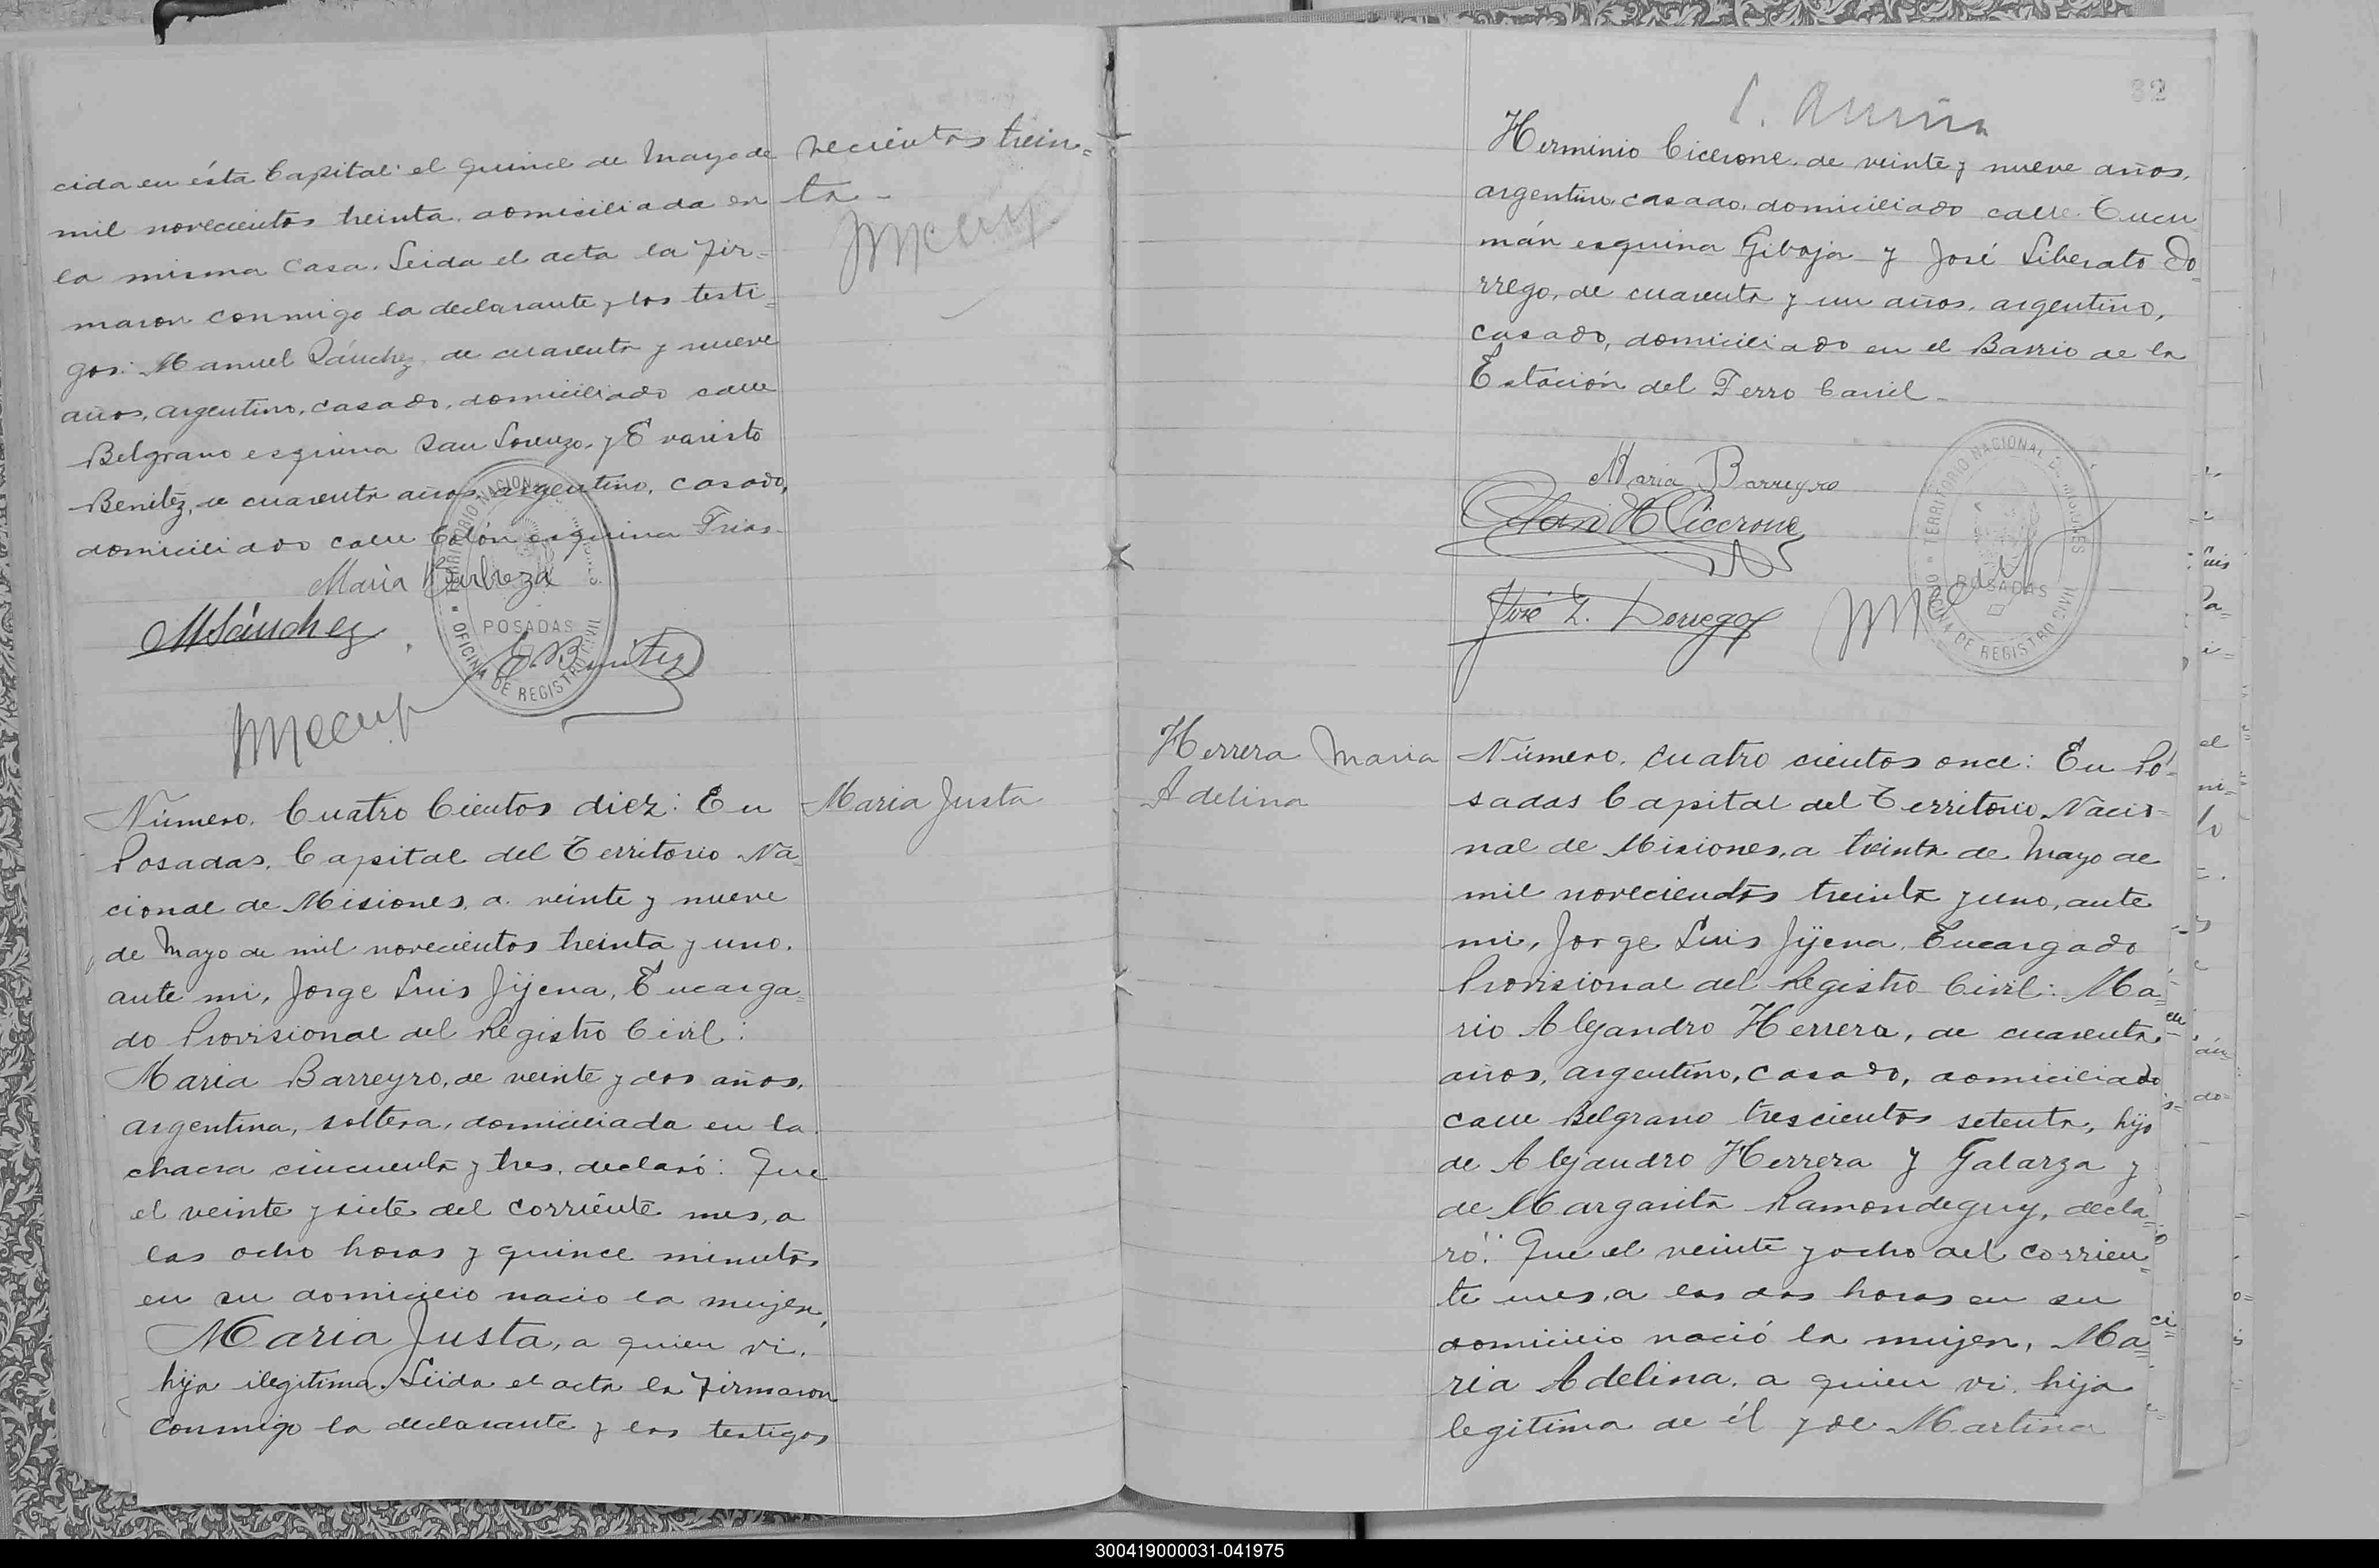 cida en ésta Capital el quince de Mayo de
mil novecientos treinta, domiciliada en
la misma casa. Leida el acta la fir=
maron conmigo la declarante y los testi=
gos: Manuel Sánchez, de cuarenta y nueve
años, argentino, casado, domiciliado calle
Belgrano esquina San Lorenzo, y Evaristo
Benitez, de cuarenta años, argentino, casado,
domiciliado calle Colón esquina Frias.
vecientos trein=
ta -
Maria
MSánchez
E. Benitez
TERRITORIO NACIONAL
POSADAS
OFICINA DE REGISTRO CIVIL
Número. Cuatro Cientos diez: En
Posadas, Capital del Territorio Na=
cional de Misiones, a veinte y nueve
de Mayo de mil novecientos treinta y uno.
ante mi, Jorge Luis Jijena, Encarga=
do Provisional del Registro Civil:
Maria Barreyro, de veinte y dos años,
argentina, soltera, domiciliada en la
chacra cincuenta y tres, declaró: Que
el veinte y siete del corriente mes, a
las ocho horas y quince minutos
en su domicilio nacio la mujer,
Maria Justa, a quien vi,
hija ilegitima. Leida el acta la firmaron
conmigo la declarante y los testigos
Maria Justa
32
Herminio Cicerone, de veinte y nueve años,
argentino, casado, domiciliado calle Tucu
mán esquina Giboja y José Liberato Do=
rrego, de cuarenta y un años, argentino,
casado, domiciliado en el Barrio de la
Estación del Ferro Carril -
Maria Barreyro
H Cicerone
José L. Dorrego
TERRITORIO NACIONAL DE MISIONES
POSADAS
OFICINA DE REGISTRO CIVIL
Herrera Maria
Adelina
Número. cuatro cientos once: En Po=
sadas Capital del Territorio Nacio=
nal de Misiones, a treinta de Mayo de
mil novecientos treinta y uno, ante
mi, Jorge Luis Jijena, Encargado
Provisional del Registro Civil: Ma=
rio Alejandro Herrera, de cuarenta
años, argentino, casado, domiciliado
calle Belgrano trescientos setenta, hijo
de Alejandro Herrera y Galarza y
de Margarita Ramondeguy, decla=
ró: Que el veinte y ocho del corrien=
te mes, a las dos horas en su
domicilio nació la mujer, Ma=
ria Adelina, a quien vi, hija
legitima de él y de Martina
300419000031-041975